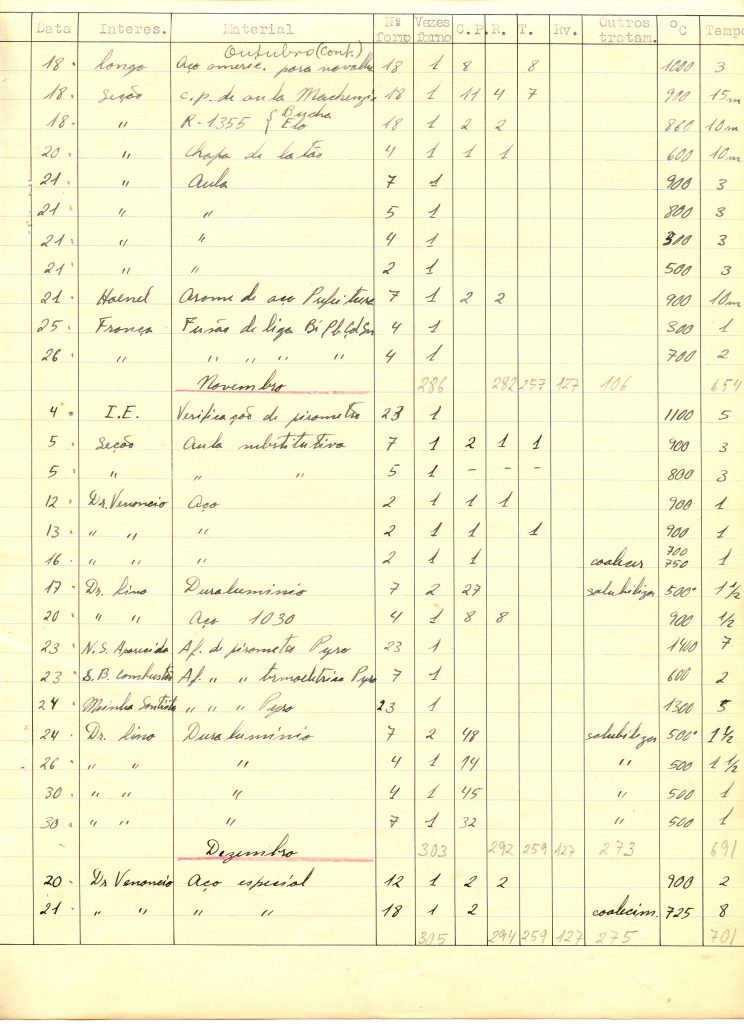 Data Interes. Material Nº forno Vezes forno C.P. R. T. Rv. Outros tratam. ºC Tempo
Outubro (Cont.)
18 · Longo Aço americ. para navalha 18 1 8 8 1000 3
18 · Seção c.p. de aula Mackenzie 18 1 11 4 7 900 15m
18 · " R-1355 { Bucha Elo 18 1 2 2 860 10m
20 · " Chapa de latão 4 1 1 1 600 10m
21 · " Aula 7 1 900 3
21 · " " 5 1 800 3
21 · " " 4 1 300 3
21 · " " 2 1 500 3
21 · Haenel Arame de aço Prefeitura 7 1 2 2 900 10m
25 · França Fusão de liga Bi Pb Cd Sn 4 1 300 1
26 · " " " " " 4 1 700 2
Novembro 286 282 257 127 106 654
4 · I.E. Verificação de pirometro 23 1 1100 5
5 · Seção Aula substitutiva 7 1 2 1 1 900 3
5 · " " " 5 1 - - - 800 3
12 · Dr. Venancio Aço 2 1 1 1 900 1
13 · " " " 2 1 1 1 900 1
16 · " " " 2 1 1 coalecer 700 750 1
17 · Dr. Lino Duraluminio 7 2 27 solubilizar 500º 1 1/2
20 · " " Aço 1030 4 1 8 8 900 1/2
23 · N.S. Aparecida Af. de pirometro Pyro 23 1 1400 7
23 · S.B. Combustão Af. " " termoeletrico Pyro 7 1 600 2
24 · Moinho Santista " " " Pyro 23 1 1300 5
24 · Dr. Lino Duraluminio 7 2 48 solubilizar 500º 1 1/2
26 · " " " 4 1 14 " 500 1 1/2
30 · " " " 4 1 45 " 500 1
30 · " " " 7 1 32 " 500 1
Dezembro 303 292 259 127 273 691
20 · Dr Venancio Aço especial 12 1 2 2 900 2
21 · " " " " 18 1 2 coalecim. 725 8
305 294 259 127 275 701